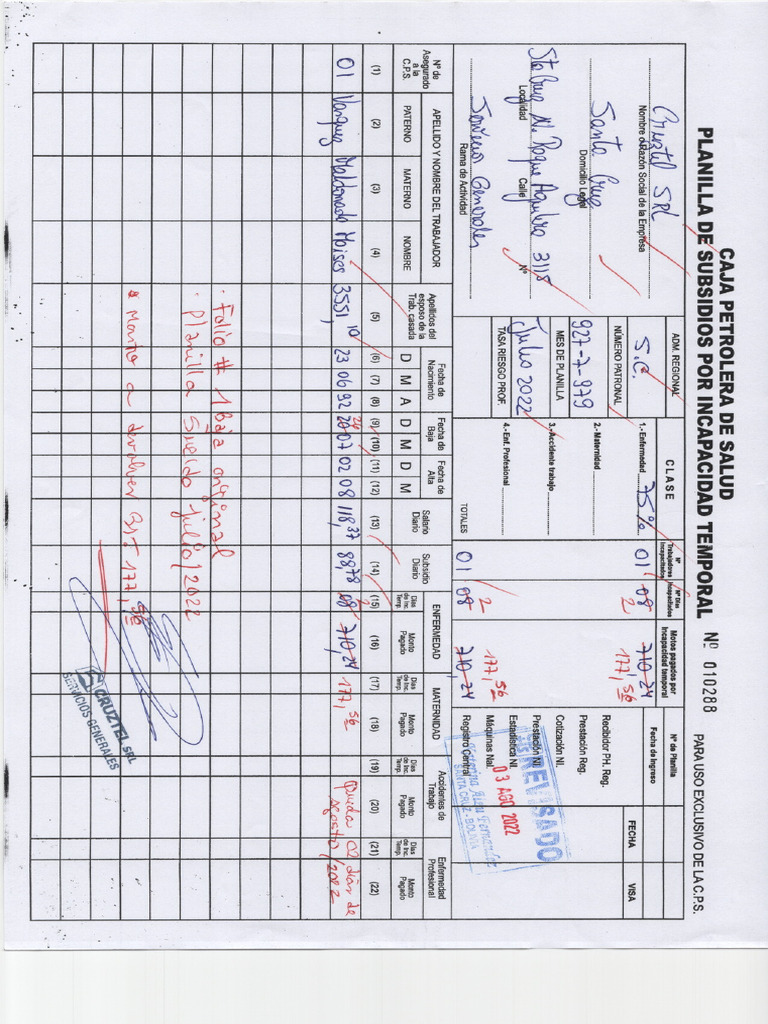 CAJA PETROLERA DE SALUD
PLANILLA DE SUBSIDIOS POR INCAPACIDAD TEMPORAL
Nº 010288
PARA USO EXCLUSIVO DE LA C.P.S.
Cruztel SRL
Nombre o Razón Social de la Empresa
Santa Cruz
Domicilio Legal
Sta Cruz N. Roque Aguilera 3118
Localidad Calle Nº
Servicios Generales
Rama de Actividad
ADM. REGIONAL
S.C.
NÚMERO PATRONAL
927-7-979
MES DE PLANILLA
Julio 2022
TASA RIESGO PROF.
CLASE
Nº Trabajadores Incapacitados
Nº Días Incapacitados
Motos pagados por Incapacidad temporal
1.- Enfermedad 75% 01 08 2 710-24 177,56
2.- Maternidad
3.- Accidente trabajo
4.- Enf. Profesional
TOTALES 01 08 2 710-24 177,56
Nº de Planilla
Fecha de Ingreso
FECHA VISA
Recibidor P.H. Reg.
Prestación Reg.
Cotización Nl.
Prestación Nl.
Estadística Nl.
Máquinas Nal.
Registro Central
REVISADO
03 AGO 2022
SANTA CRUZ - BOLIVIA
Nº de Asegurado a la C.P.S.
APELLIDO Y NOMBRE DEL TRABAJADOR
PATERNO MATERNO NOMBRE
Apellidos del esposo de la Trab. casada
Fecha de Nacimiento
D M A
Fecha de Baja
D M
Fecha de Alta
D M
Salario Diario
Subsidio Diario
ENFERMEDAD
Días de Inc. Temp. Monto Pagado
MATERNIDAD
Días de Inc. Temp. Monto Pagado
Accidentes de Trabajo
Días de Inc. Temp. Monto Pagado
Enfermedad Profesional
Días de Inc. Temp. Monto Pagado
(1) (2) (3) (4) (5) (6) (7) (8) (9) (10) (11) (12) (13) (14) (15) (16) (17) (18) (19) (20) (21) (22)
01 Vasquez Maldonado Moises 3551,10 23 06 92 24 07 02 08 118,37 88,78 08 710-24 177,56
Agosto/2022
• Folio # 1 baja original
• Planilla Sueldo julio/2022
* Monto a devolver Bs. 177,56
CRUZTEL SRL
SERVICIOS GENERALES